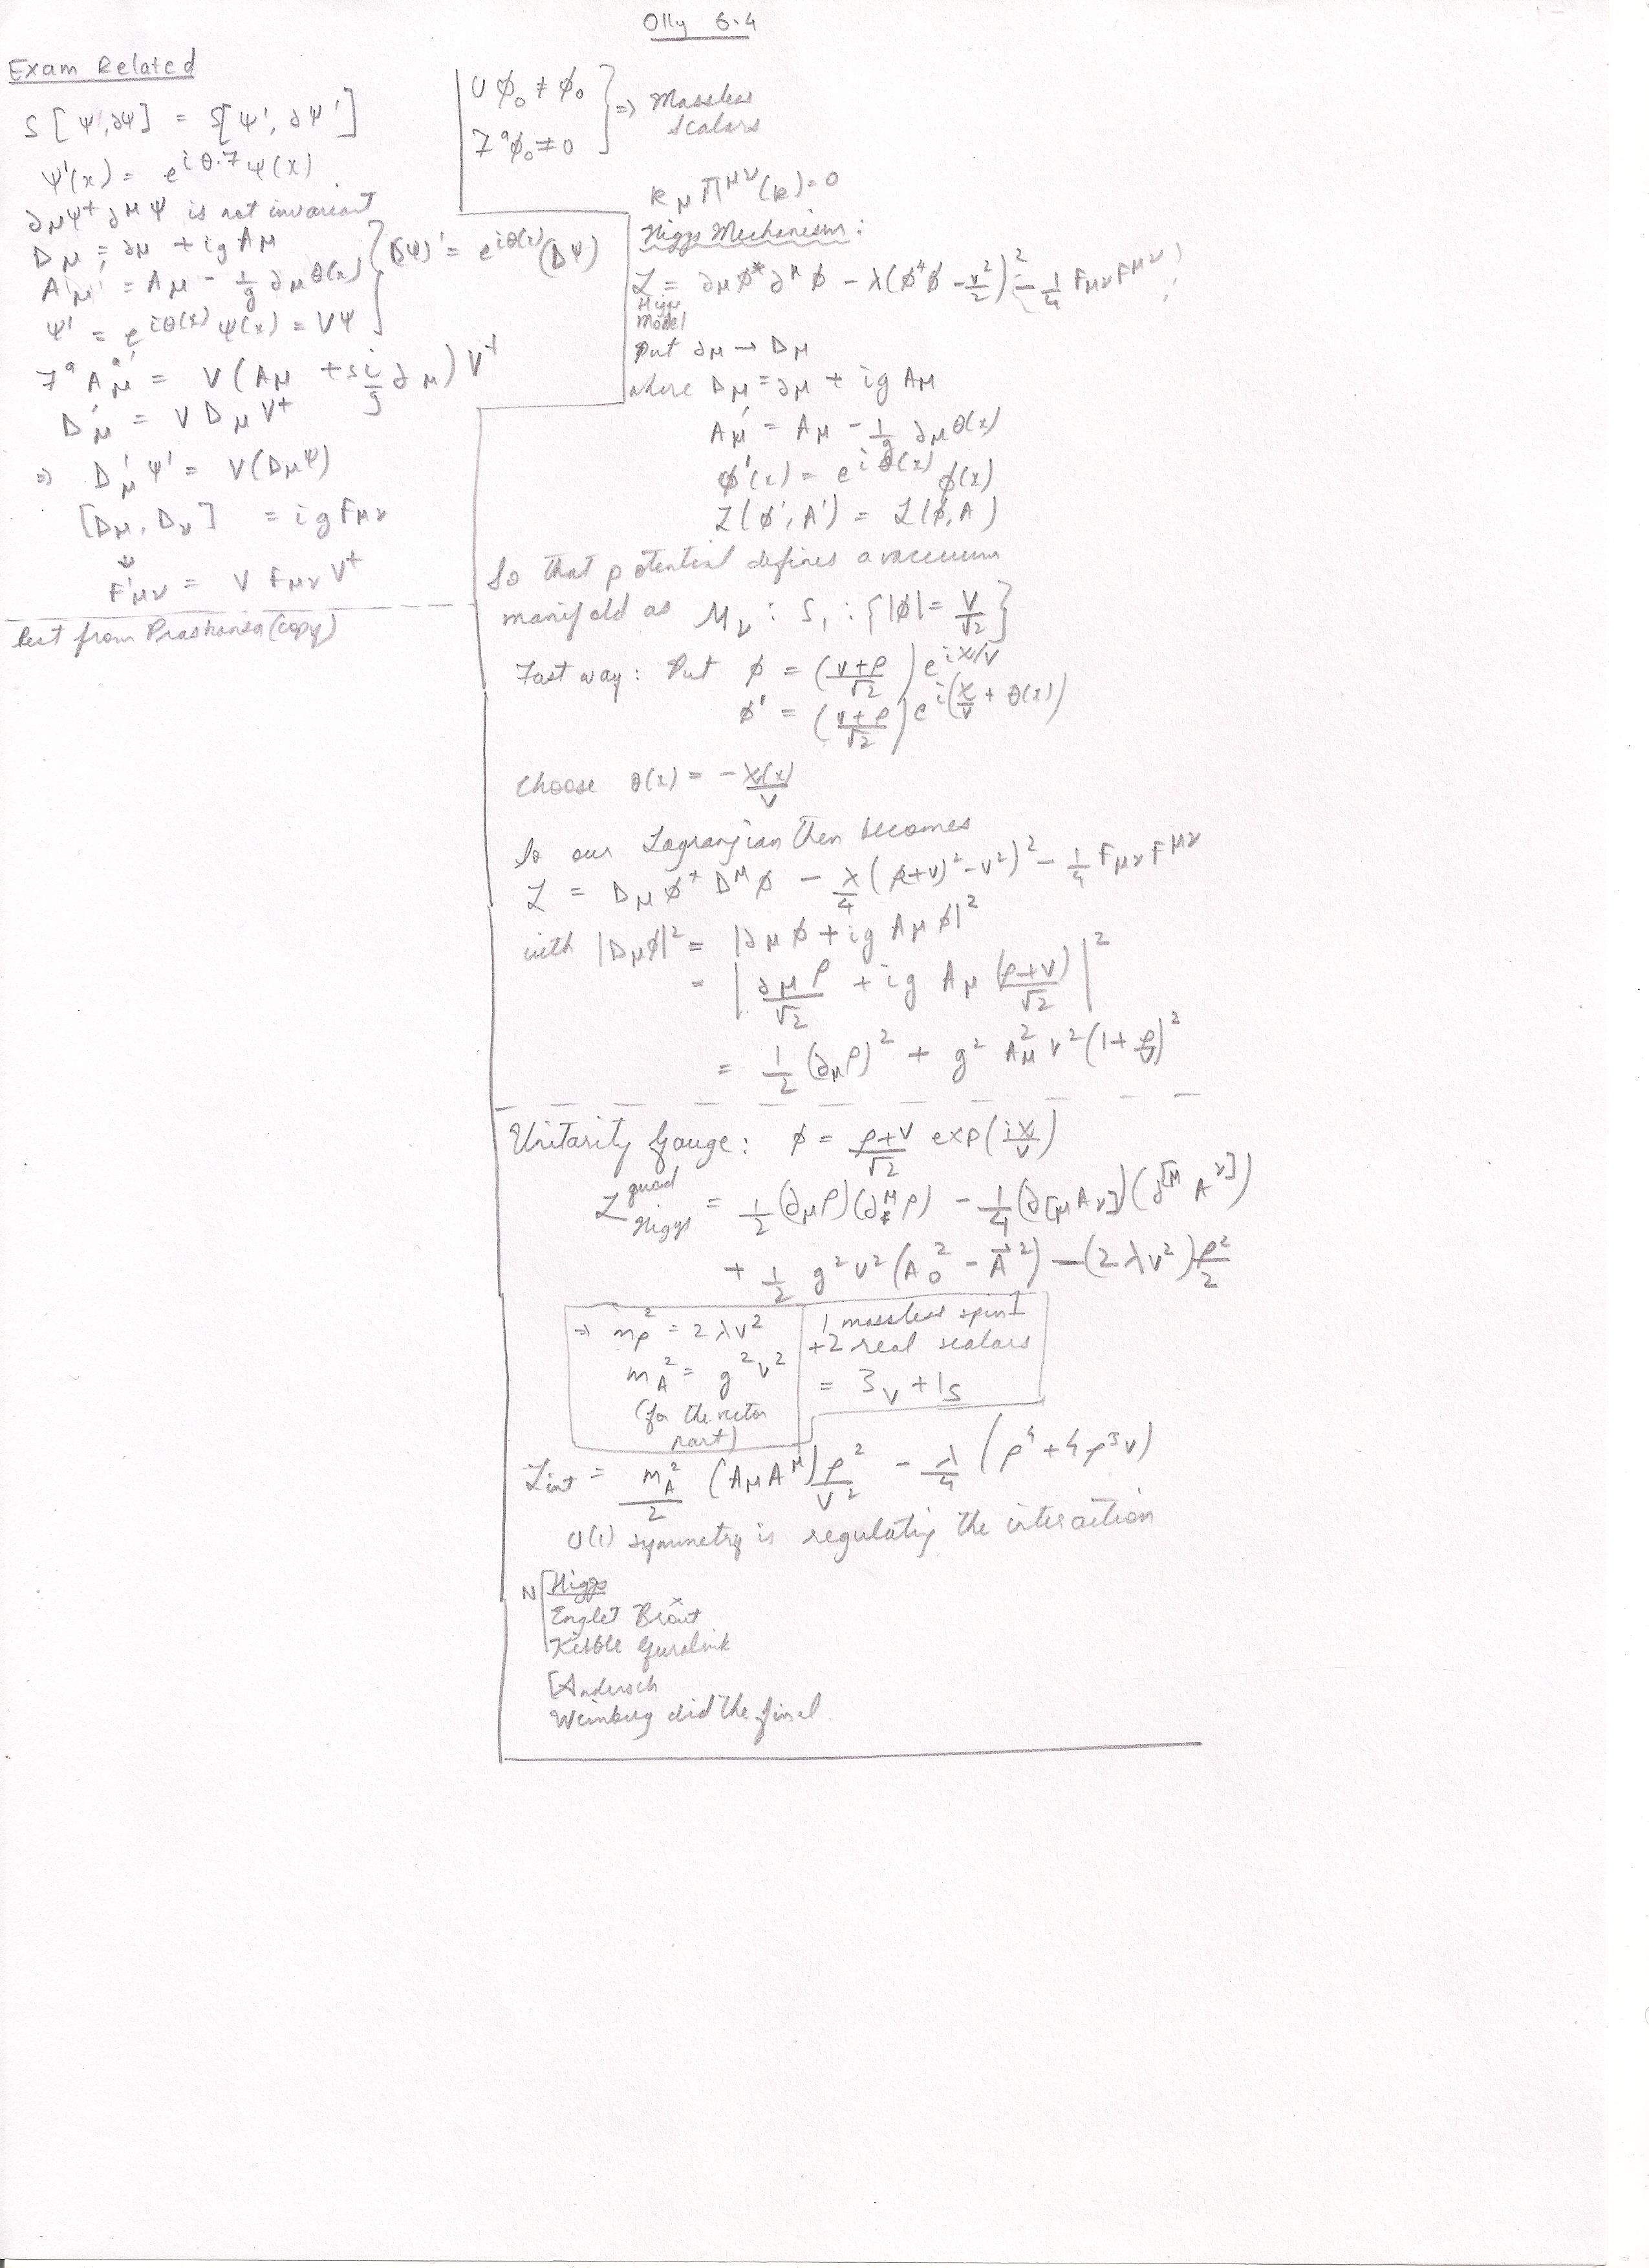 Olly 6.4
Exam Related
S[Ψ, ∂Ψ] = S[Ψ', ∂Ψ']
Ψ'(x) = e^{iθ·T} Ψ(x)
∂_μΨ† ∂^μΨ is not invariant
D_μ = ∂_μ + ig A_μ
A'_μ = A_μ - 1/g ∂_μθ(x)
Ψ' = e^{iθ(x)} Ψ(x) = VΨ
} (DΨ)' = e^{iθ(x)} (DΨ)
T^a A^a_μ' = V(A_μ + i/g ∂_μ) V†
D'_μ = V D_μ V†
⇒ D'_μ Ψ' = V(D_μΨ)
[D_μ, D_ν] = ig F_μν
⇓
F'_μν = V F_μν V†
Rest from Prashansa (copy)
U φ_0 ≠ φ_0
T^a φ_0 ≠ 0
} ⇒ Massless
scalars
k_μ Π^{μν}(k) = 0
Higgs Mechanism:
ℒ = ∂_μφ* ∂^μφ - λ(φ*φ - v²/2)² - 1/4 F_μν F^{μν}
Higgs
Model
Put ∂_μ → D_μ
where D_μ = ∂_μ + ig A_μ
A'_μ = A_μ - 1/g ∂_μθ(x)
φ'(x) = e^{iθ(x)} φ(x)
ℒ(φ', A') = ℒ(φ, A)
So that potential defines a vacuum
manifold as M_v : S_1 : {|φ| = v/√2}
Fast way: Put φ = ((v+ρ)/√2) e^{iχ/v}
φ' = ((v+ρ)/√2) e^{i(χ/v + θ(x))}
Choose θ(x) = -χ(x)/v
So our Lagrangian then becomes
ℒ = D_μφ* D^μφ - λ/4 (ρ+v)² - v²)² - 1/4 F_μν F^{μν}
with |D_μφ|² = |∂_μφ + ig A_μφ|²
= |∂_μρ/√2 + ig A_μ (ρ+v)/√2|²
= 1/2 (∂_μρ)² + g² A_μ² v² (1 + ρ/v)²
Unitarity Gauge: φ = (ρ+v)/√2 exp(iχ/v)
ℒ^{quad}_{Higgs} = 1/2 (∂_μρ)(∂^μρ) - 1/4 (∂_[μ A_ν])(∂^[μ A^ν])
+ 1/2 g²v² (A_0² - A⃗²) - (2λv²) ρ²/2
⇒ m_ρ² = 2λv²
m_A² = g²v²
(for the vector
part)
1 massless spin 1
+2 real scalars
= 3_v + 1_s
ℒ_int = m_A²/2 (A_μA^μ) ρ²/v² - λ/4 (ρ⁴ + 4ρ³v)
U(1) symmetry is regulating the interaction
N [Higgs
Englet Brout
Kibble Guralnik
Weinberg did the final